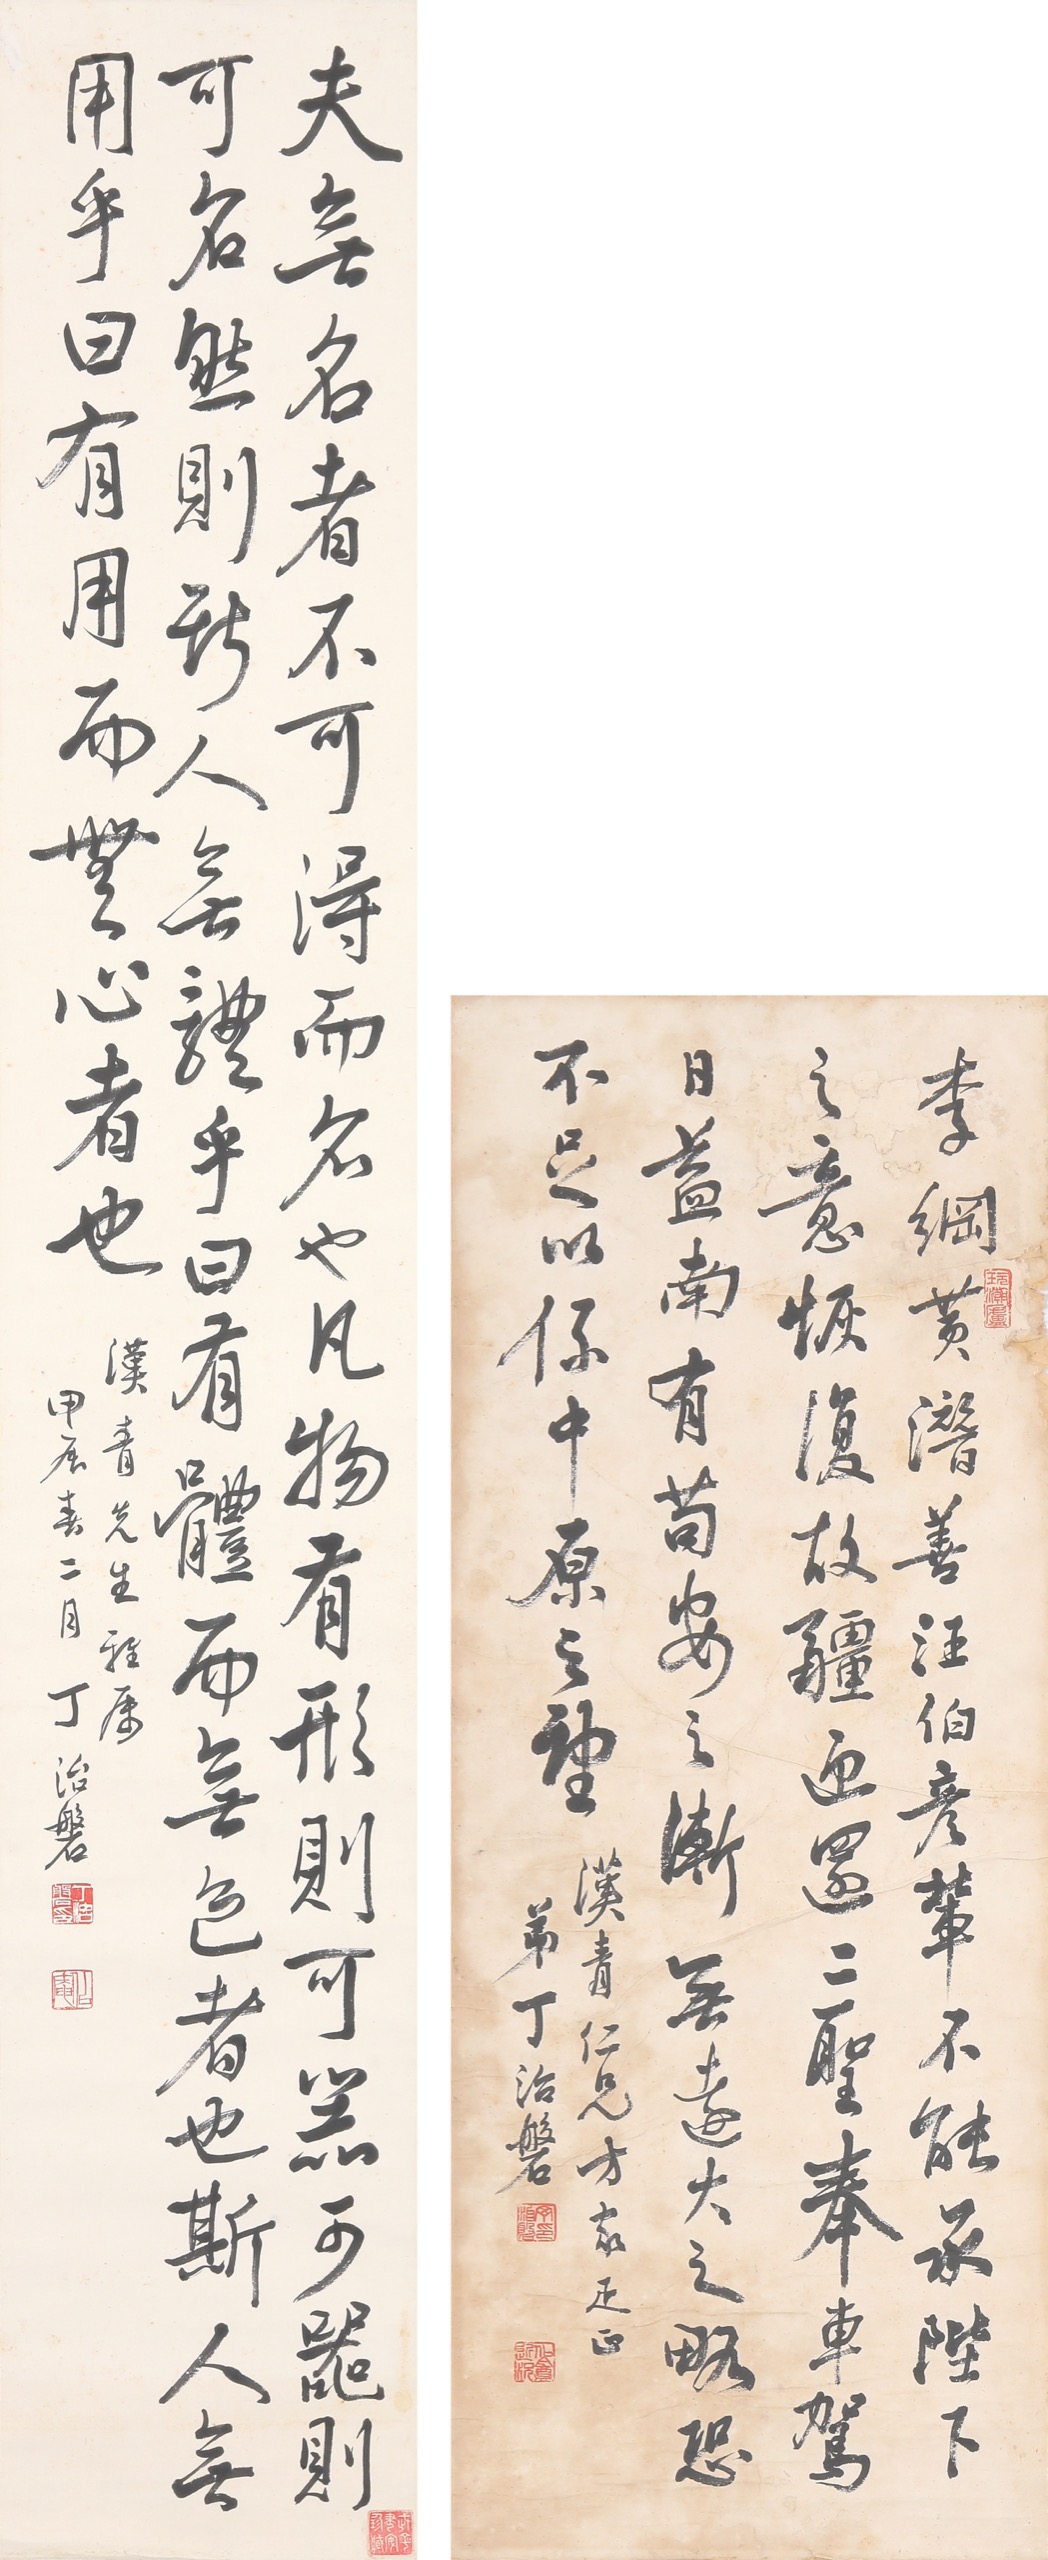 夫無名者不可得而名也凡物有形則可器可器則
可名然則斯人無體乎曰有體而無色者也斯人無
用乎曰有用用而無心者也
漢青先生雅屬
甲辰春二月丁治磐
李綱黃潛善汪伯彥輩不能承陛下
之意恢復故疆迎還二聖奉車駕
日益南有苟安之漸無遠大之略恐
不足以係中原之望
漢青仁兄方家疋正
弟丁治磐